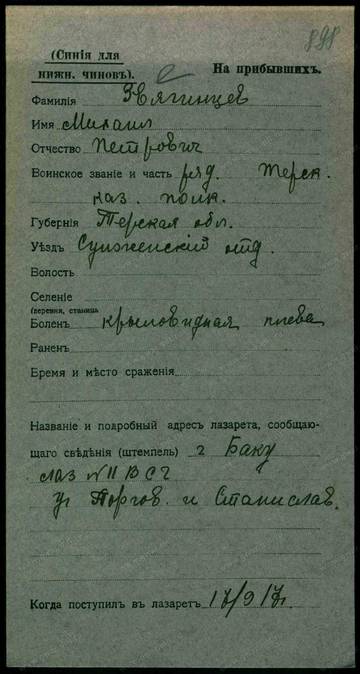 898
(Синія для
нижн. чиновъ). На прибывшихъ.
Фамилія Звягинцев
Имя Михаил
Отчество Петрович
Воинское званіе и часть ряд. Терск.
каз. полк.
Губернія Терская обл.
Уѣздъ Сунженский отд.
Волость
Селеніе
(деревня, станица
Боленъ крыловидная плева
Раненъ
Время и мѣсто сраженія
Названіе и подробный адресъ лазарета, сообщаю-
щаго свѣдѣнія (штемпель) г Баку
лаз N 11 В С Г
уг Торгов. и Станислав.
Когда поступилъ въ лазаретъ 17/9 17г.